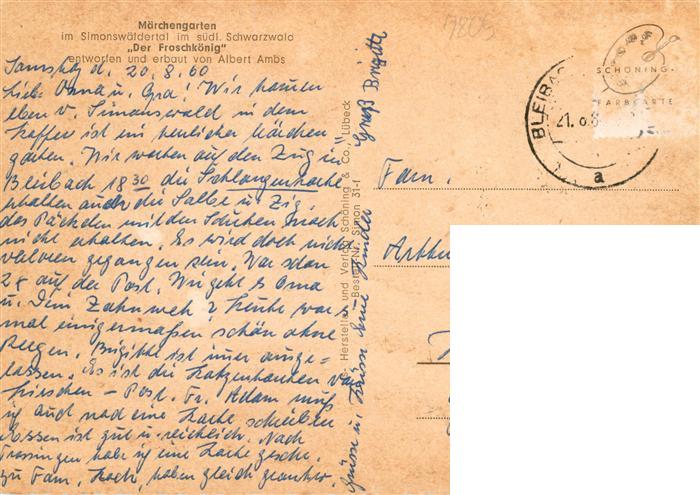 Märchengarten
im Simonswäldertal im südl. Schwarzwald
„Der Froschkönig"
entworfen und erbaut von Albert Ambs
7805
Samstag d. 20.8.60
Liebe Oma u. Opa! Wir kamen
eben v. Simonswald in dem
Kaffee ist ein herrlicher Märchen
garten. Wir warten auf den Zug in
Bleibach 18 30 die
erhalten auch die Salbe u. Zig.
das Päckchen mit den Schuhen noch
nicht erhalten. Es wird doch nicht
verloren gegangen sein. War schon
2x auf der Post. Wie geht es Oma
u. Dein Zahnweh? Heute war es
mal einigermaßen schön ohne
Regen. Brigitte ist immer ausge=
lassen. Es ist die
Hirschen – Post. Fr. Adam muß
ich auch noch eine Karte schreiben
Essen ist gut u. reichlich. Nach
Trossingen habe ich eine Karte geschr.
zu Fam. Koch, haben gleich
Grüsse u. Küsse Eure Kinder
Gruß Brigitte
Hersteller und Verlag Schöning & Co., Lübeck
Bestell-Nr. Simon 31-f
SCHÖNING-
FARBKARTE
BLEIBAC
21. 8.6
a
Fam.